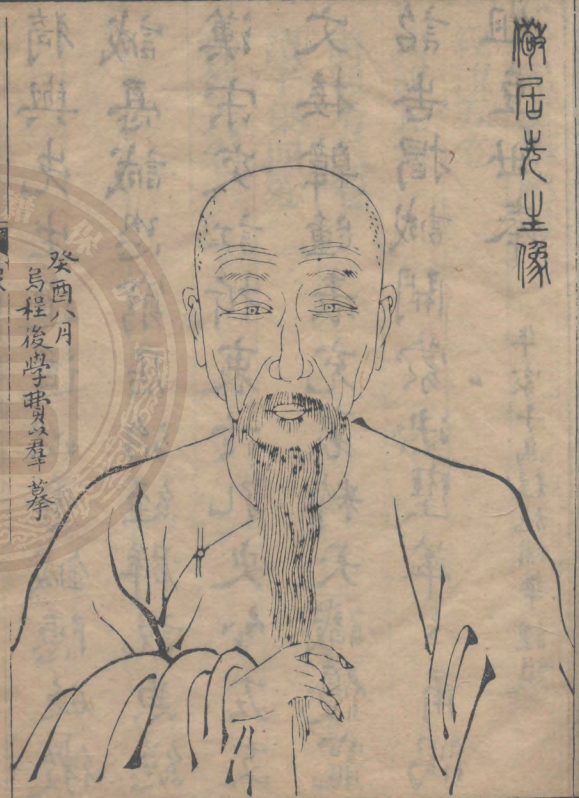 儆居先生像
癸酉八月
烏程後學費以羣摹